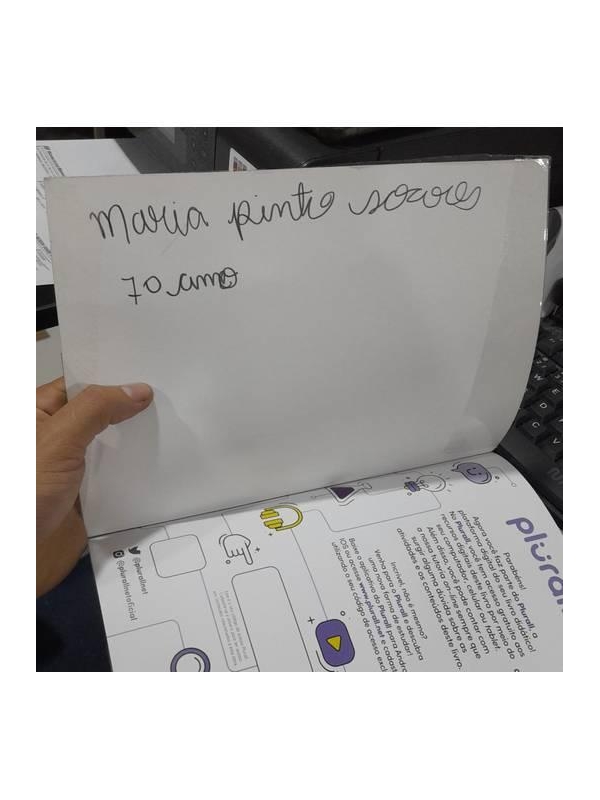 Maria pinto soares
7º ano
plurall
Parabéns!
Agora você faz parte do Plurall, a
plataforma digital do seu livro didático!
No Plurall, você tem acesso gratuito aos
recursos digitais deste livro por meio do
seu computador, celular ou tablet.
Além disso, você pode contar com
a nossa tutoria on-line sempre que
surgir alguma dúvida sobre as
atividades e os conteúdos deste livro.
Incrível, não é mesmo?
Venha para o Plurall e descubra
uma nova forma de estudar!
Baixe o aplicativo do Plurall para Andro
IOS ou acesse www.plurall.net e cadast
utilizando o seu código de acesso excl
@plurallnet
@plurallnetoficial